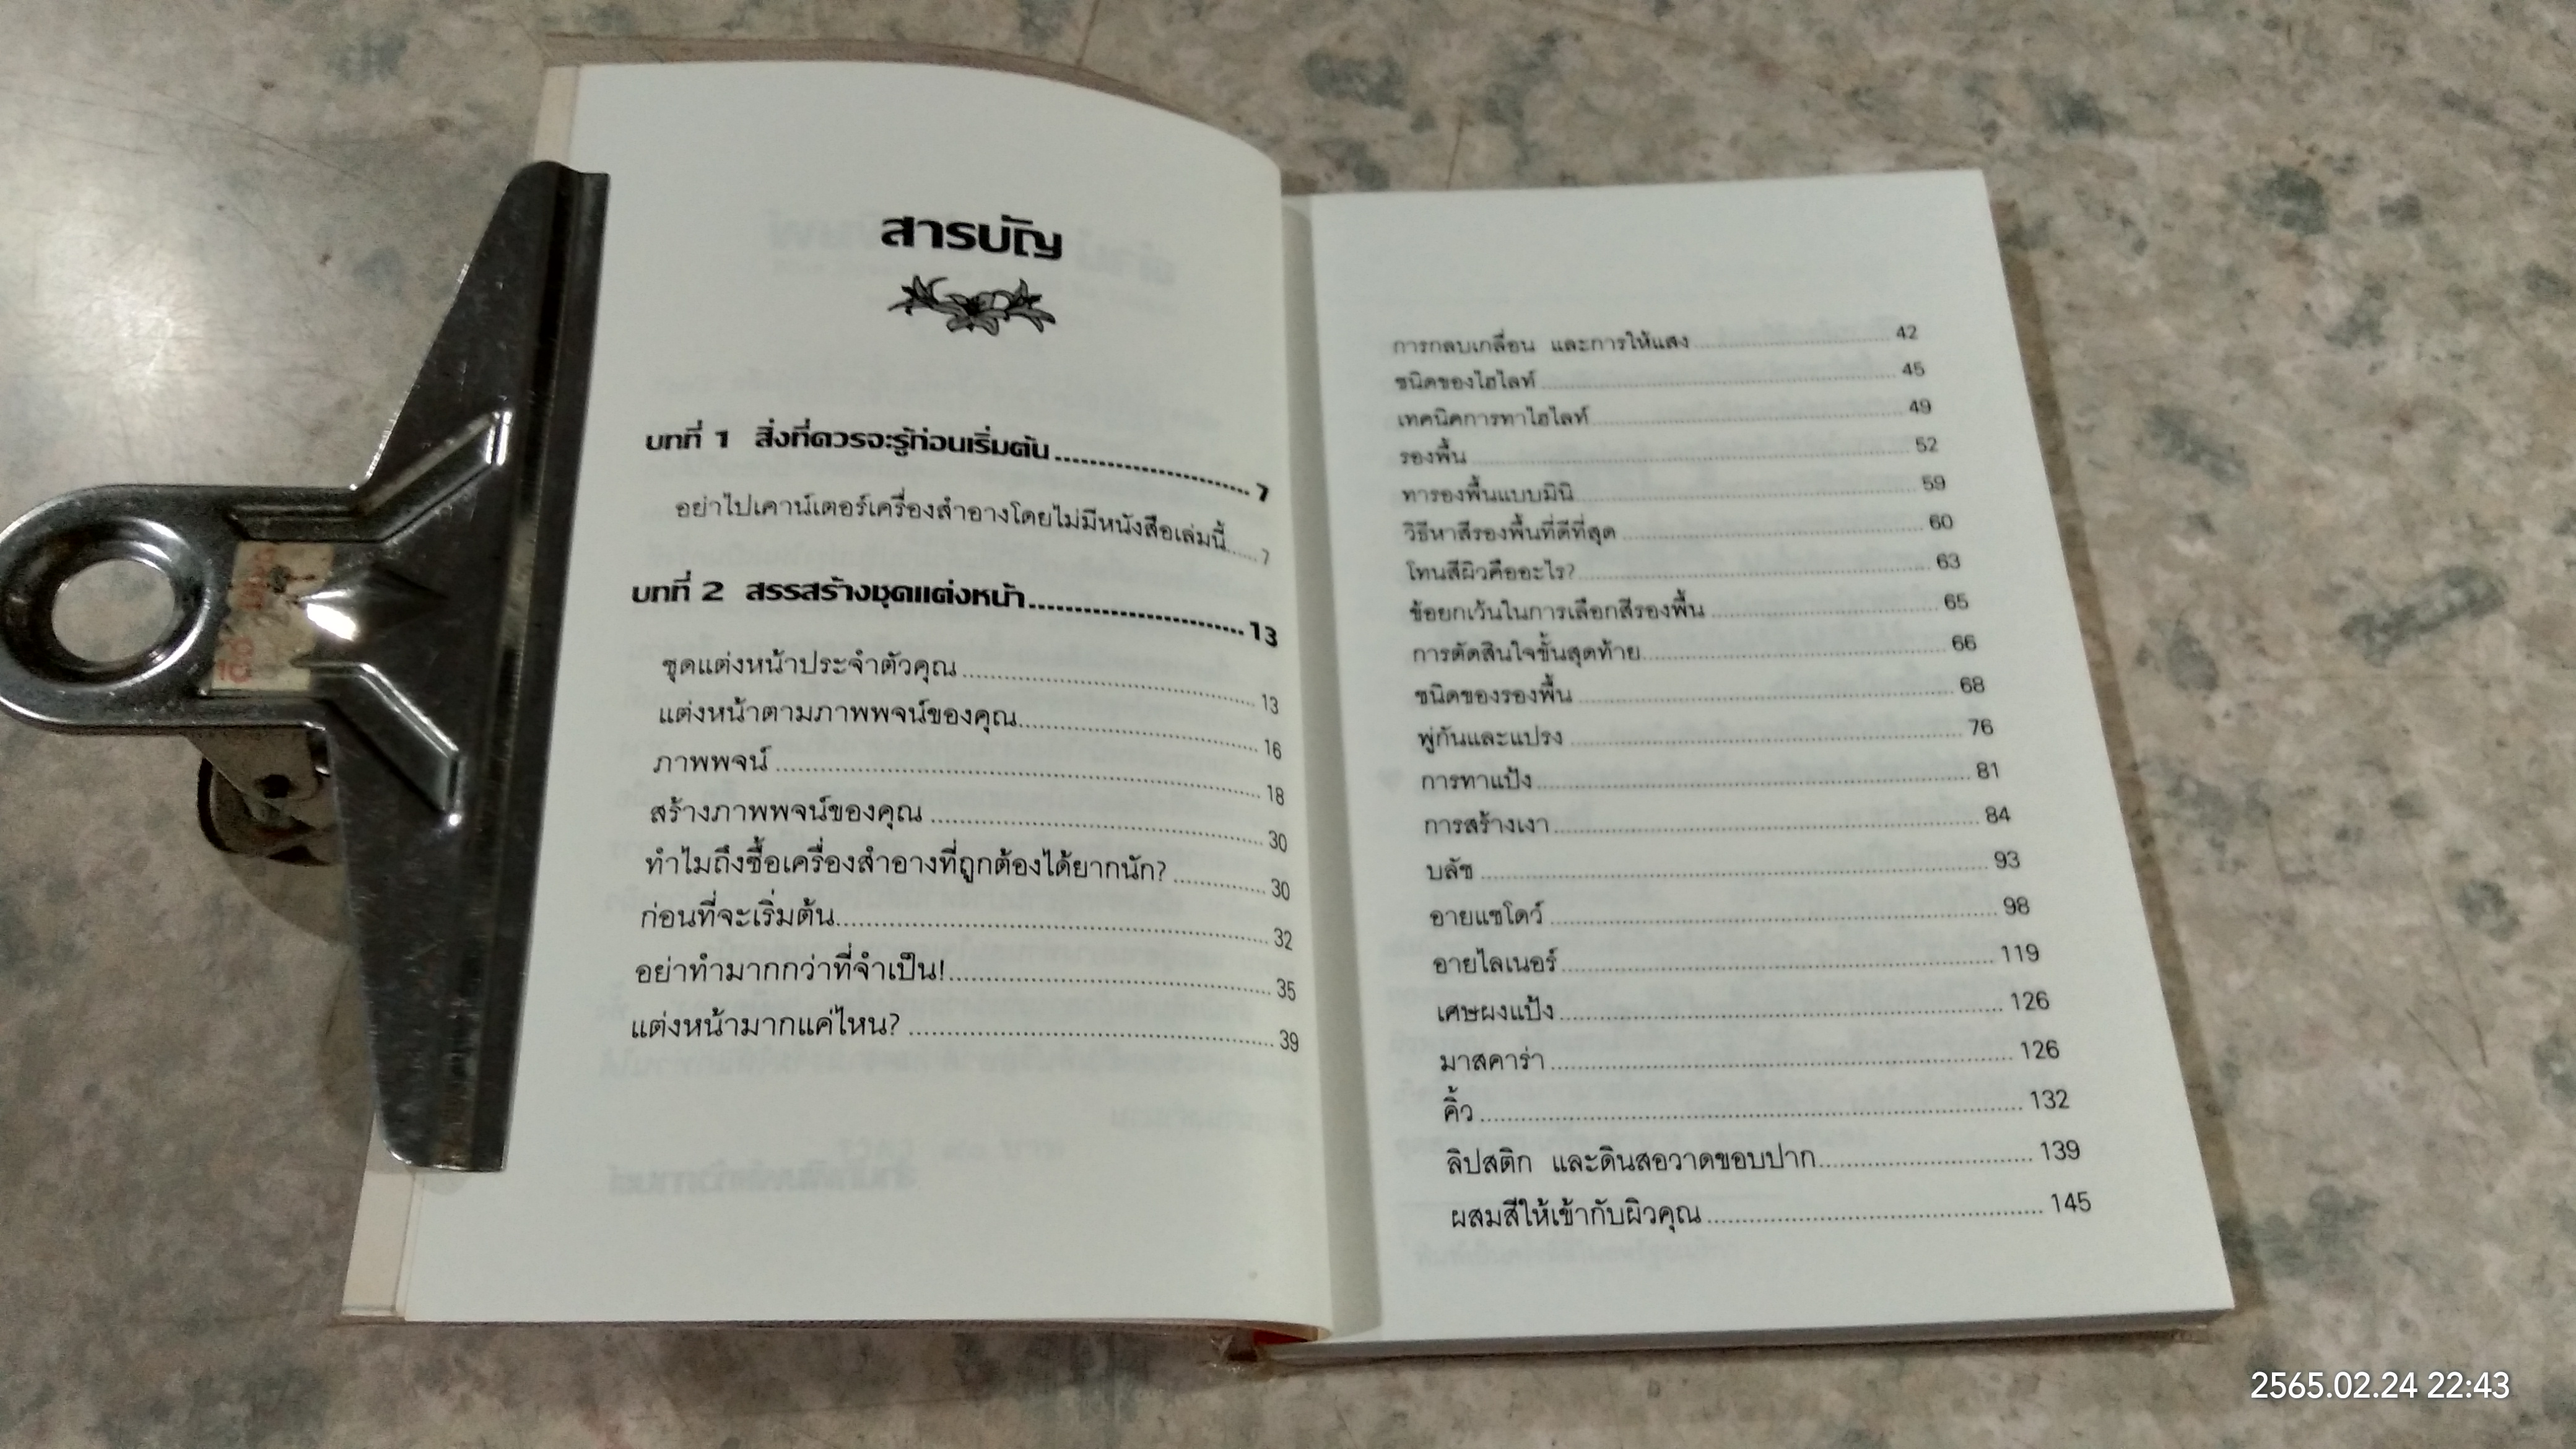 สารบัญ
บทที่ 1 สิ่งที่ควรจะรู้ก่อนเริ่มต้น.......................... 7
อย่าไปเคาน์เตอร์เครื่องสำอางโดยไม่มีหนังสือเล่มนี้...... 7
บทที่ 2 สรรสร้างชุดแต่งหน้า.............................. 13
ชุดแต่งหน้าประจำตัวคุณ.............................. 13
แต่งหน้าตามภาพพจน์ของคุณ.............................. 16
ภาพพจน์.............................. 18
สร้างภาพพจน์ของคุณ.............................. 30
ทำไมถึงซื้อเครื่องสำอางที่ถูกต้องได้ยากนัก?.............. 30
ก่อนที่จะเริ่มต้น.............................. 32
อย่าทำมากกว่าที่จำเป็น!.............................. 35
แต่งหน้ามากแค่ไหน?.............................. 39
การกลบเกลื่อน และการให้แสง.............................. 42
ชนิดของไฮไลท์.............................. 45
เทคนิคการทาไฮไลท์.............................. 49
รองพื้น.............................. 52
ทารองพื้นแบบมินิ.............................. 59
วิธีหาสีรองพื้นที่ดีที่สุด.............................. 60
โทนสีผิวคืออะไร?.............................. 63
ข้อยกเว้นในการเลือกสีรองพื้น.............................. 65
การตัดสินใจขั้นสุดท้าย.............................. 66
ชนิดของรองพื้น.............................. 68
พู่กันและแปรง.............................. 76
การทาแป้ง.............................. 81
การสร้างเงา.............................. 84
บลัช.............................. 93
อายแชโดว์.............................. 98
อายไลเนอร์.............................. 119
เศษผงแป้ง.............................. 126
มาสคาร่า.............................. 126
คิ้ว.............................. 132
ลิปสติก และดินสอวาดขอบปาก.............................. 139
ผสมสีให้เข้ากับผิวคุณ.............................. 145
2565.02.24 22:43